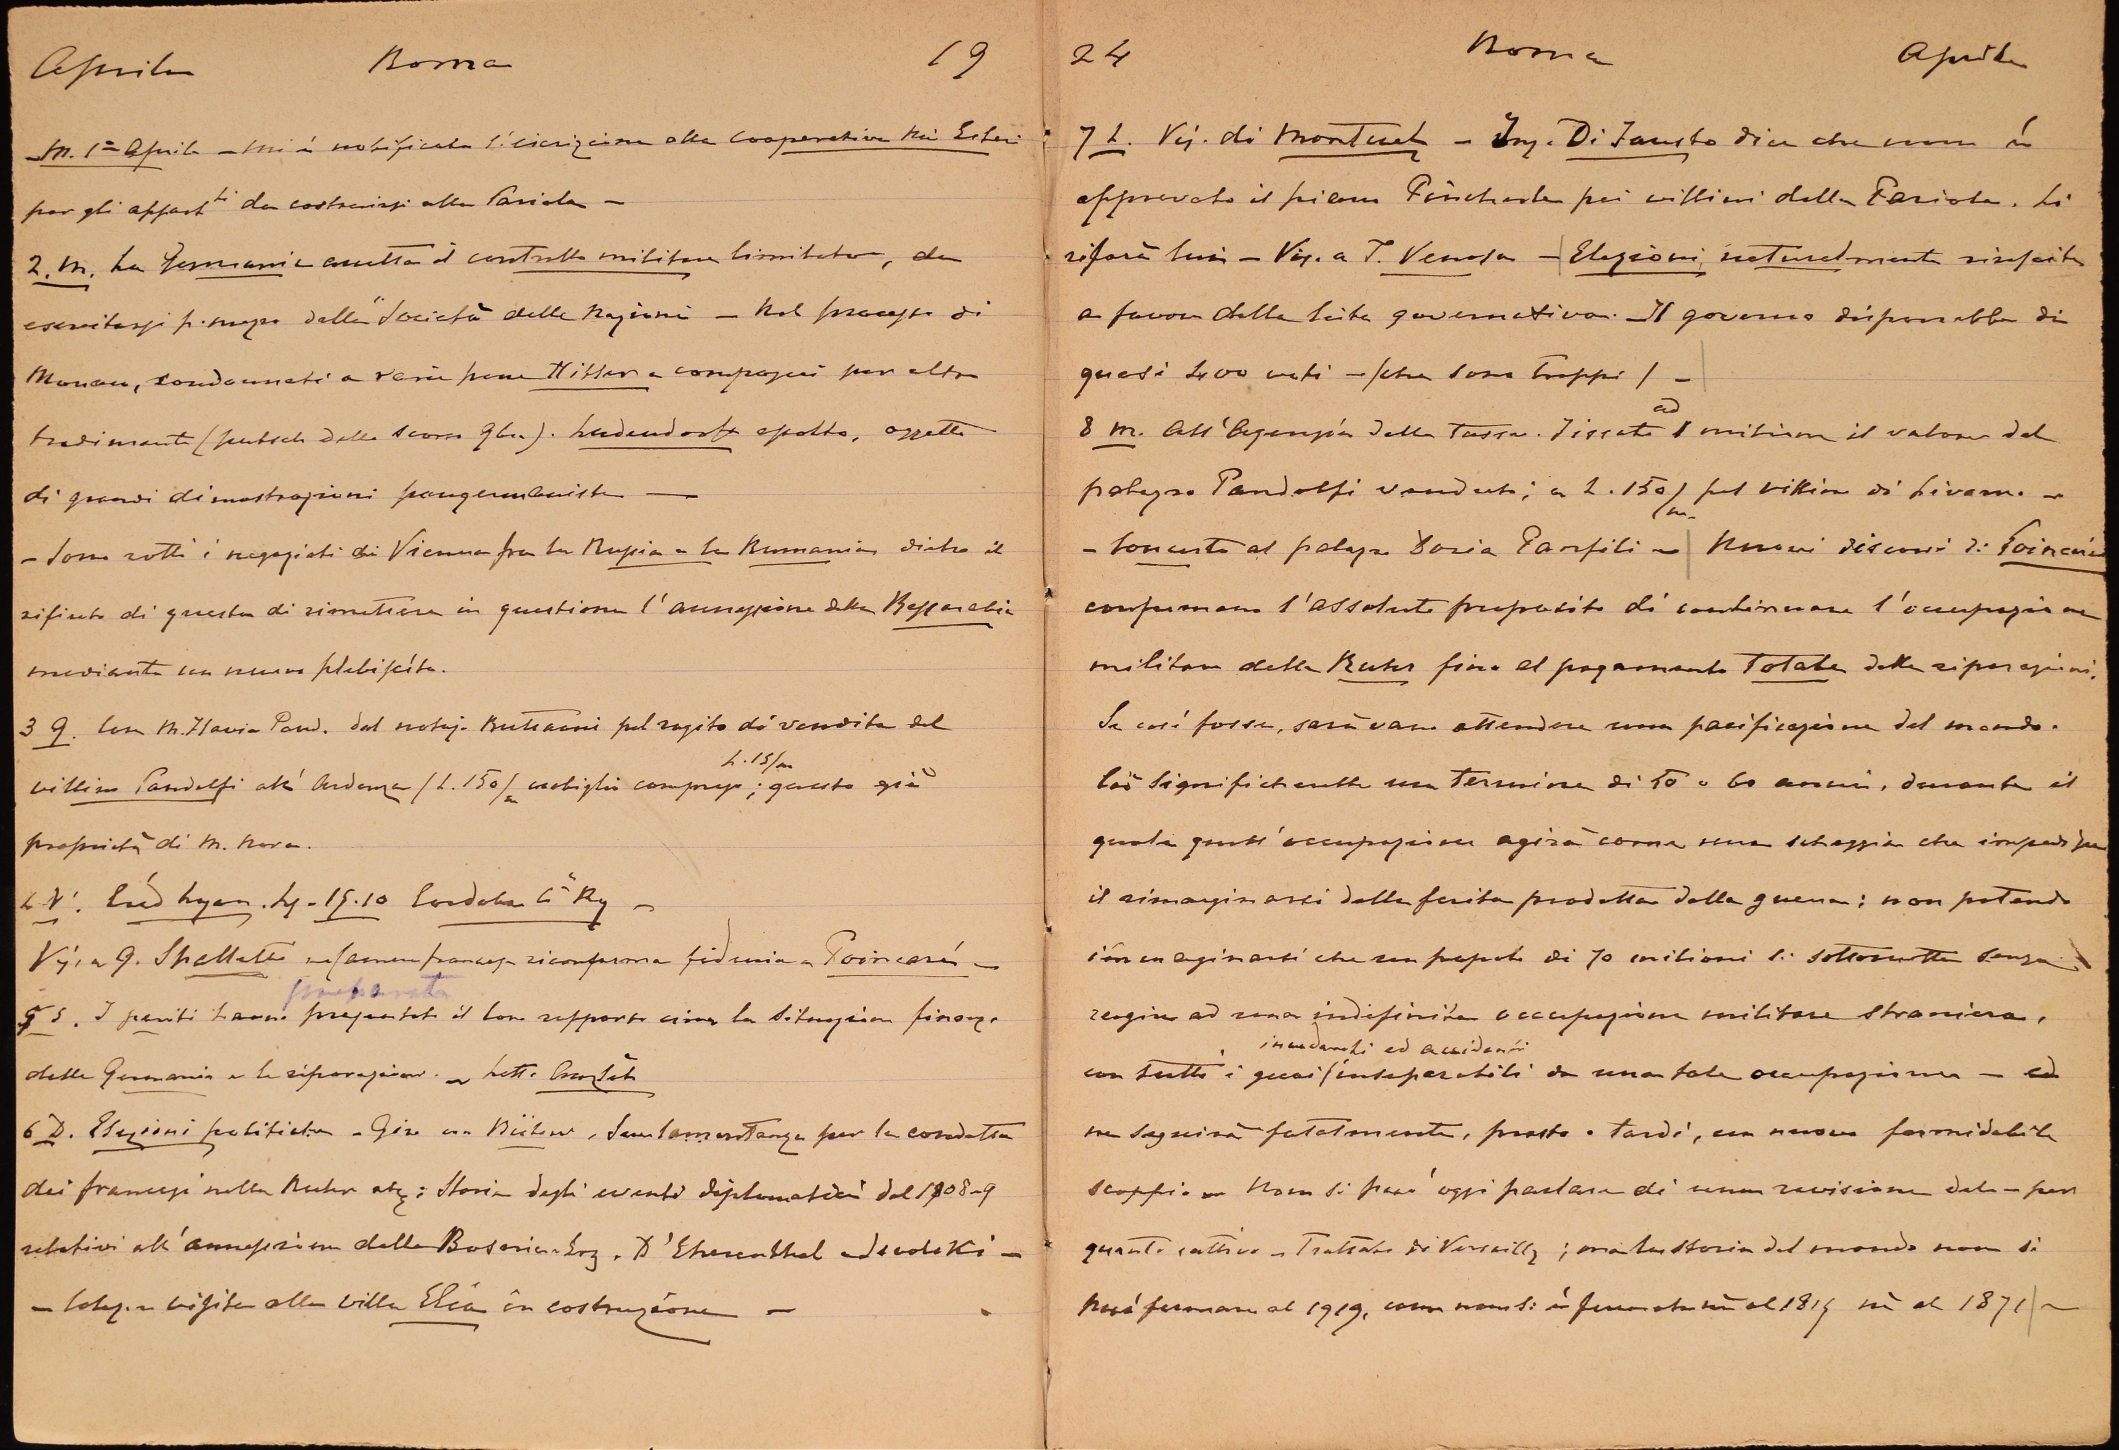 Aprile Roma 19
M. 1º Aprile – Mi è notificata l'iscrizione alla Cooperativa Min Esteri
per gli appart.ti da costruirsi alla Pariola –
2. M. La Germania accetta il controllo militare limitato, da
esercitarsi p. mezzo della Società delle Nazioni – Nel processo di
Monaco, condannati a varie pene Hitler e compagni per alto
tradimento (putsch dello scorso 9bre). Ludendorff assolto, oggetto
di grandi dimostrazioni pangermaniste —
– Sono rotti i negoziati di Vienna fra la Russia e la Rumania dietro il
rifiuto di questa di rimettere in questione l'annessione della Bessarabia
mediante un nuovo plebiscito.
3 G. Con M. Flavia Pand. dal notaj. Buttaoni pel rogito di vendita del
villino Pandolfi all'Ardenza (L. 150/m mobiglio compreso L. 15/m; questo già
proprietà di M. Nora.
4 V. Créd Lyon. Ly. 15.10
Vis. a G. Spalletti – Camera francese riconferma fiducia a Poincaré –
5 S. I periti hanno presentato il loro rapporto circa la situazione finanz.
della Germania e le riparazioni. – Lett.
6 D. Elezioni politiche – Giro con Bülow. Sua lamentanza per la condotta
dei francesi nella Ruhr etc; Storia degli eventi diplomatici del 1908-9
relativi all'annessione della Bosnia-Erz. D'Ehrenthal ed Isvolski –
– Colaz. e visita alla villa Elia in costruzione –
24 Roma Aprile
7 L. Vis. di – Ing. Di Fausto dice che non è
approvato il piano pei villini della Pariola. Lo
rifarà lui – Vis. a T. Venosa – Elezioni, naturalmente riuscite
a favore della lista governativa. – Il governo disporrebbe di
quasi 400 voti – (che sono troppi) –
8 M. All'Agenzia delle Tasse. Fissato ad 1 milione il valore del
palazzo Pandolfi venduto; a L. 150/m pel villino di Livorno –
– Concerto al palazzo Doria Panfili – Nuovi discorsi di Poincaré
confermano l'assoluto proposito di continuare l'occupazione
militare della Ruhr fino al pagamento totale delle riparazioni.
Se così fosse, sarà vano attendere una pacificazione del mondo.
Ciò significherebbe un termine di 50 o 60 anni, durante il
quale quest'occupazione agirà come una scheggia che impedisce
il rimarginarsi della ferita prodotta dalla guerra; non potendo
immaginarsi che un popolo di 70 milioni si sottometta senza
reagire ad una indefinita occupazione militare straniera,
con tutti i guai, incidenti ed accidenti inseparabili da una tale occupazione –
ne seguirà fatalmente, presto o tardi, un nuovo formidabile
scoppio – Non si può oggi parlare di una revisione del – per
quanto cattivo – Trattato di Versailles; ma la storia del mondo non si
può fermare al 1919, come non si è fermata nè al 1815 nè al 1871 –